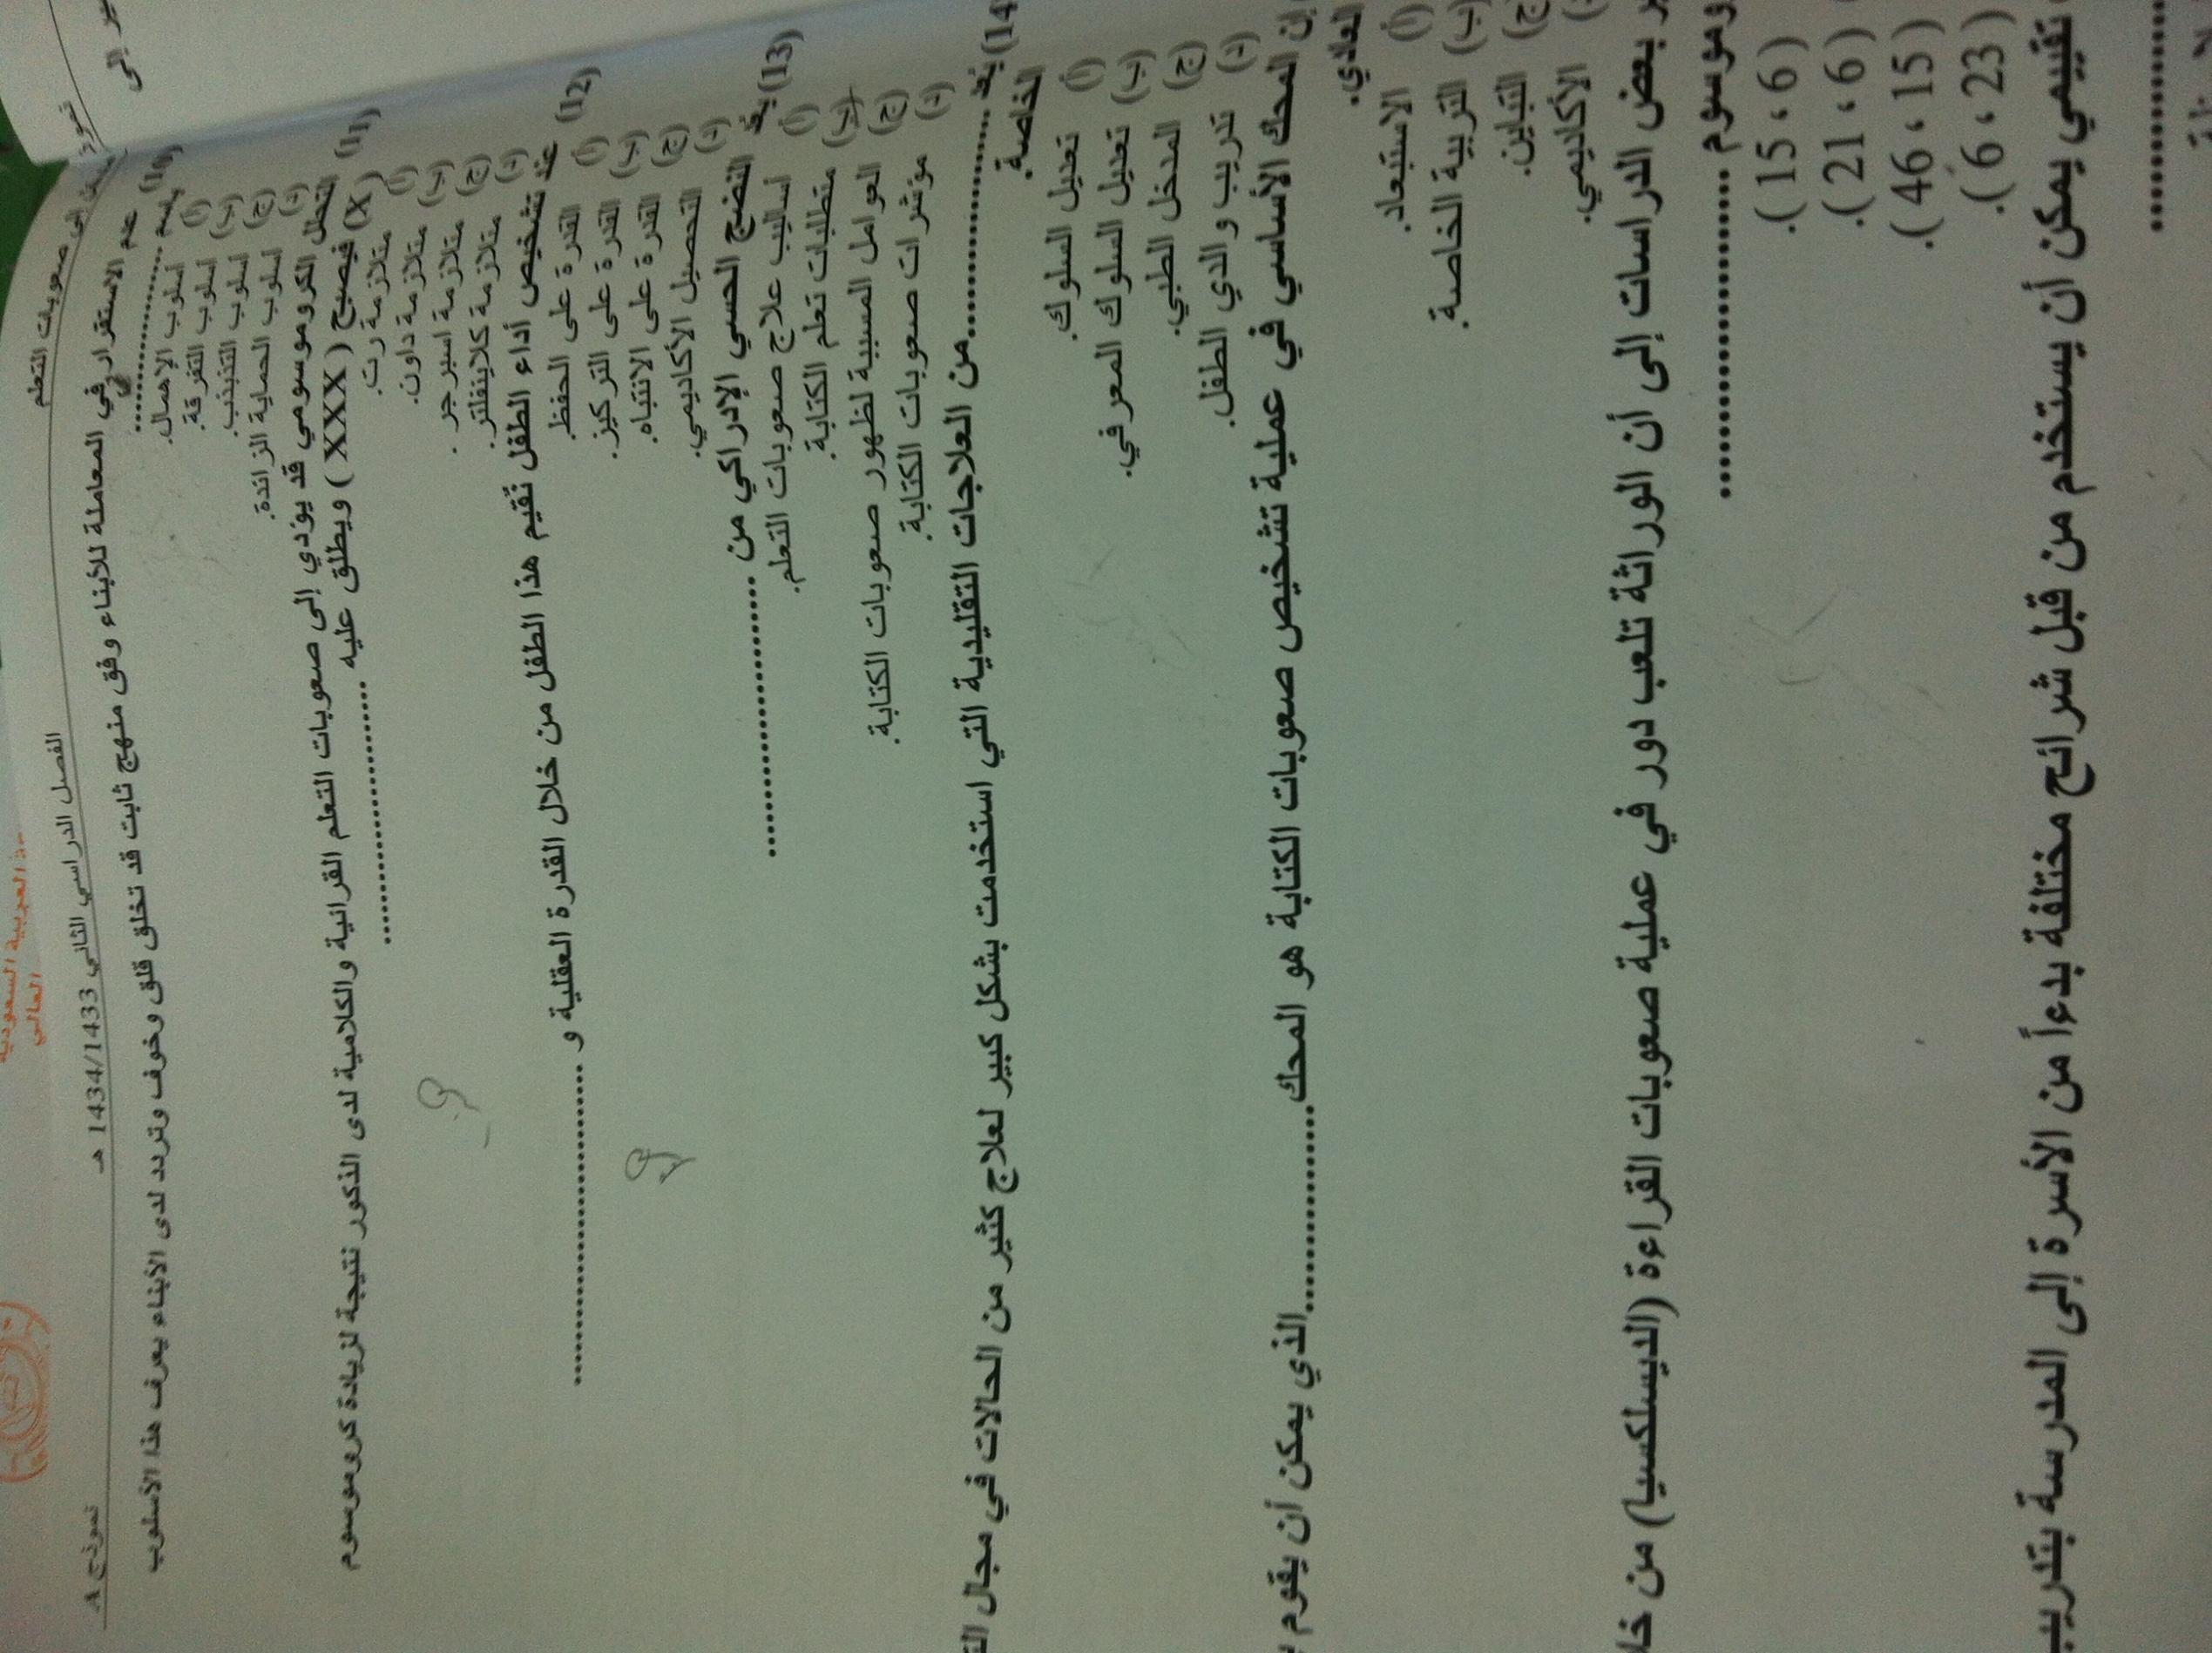 العربية السعودية
العالي
صعوبات التعلم
الفصل الدراسي الثاني 1434/1433 هـ
نموذج A
(10 عدم الاستقرار في المعاملة للأبناء وفق منهج ثابت قد تخلق قلق وخوف وتردد لدى الأبناء يعرف هذا الأسلوب
....................
(أ) أسلوب الإهمال.
(ب) أسلوب التفرقة.
(ج) أسلوب التذبذب.
(د) أسلوب الحماية الزائدة.
(11 الخلل الكروموسومي قد يؤدي إلى صعوبات التعلم القرائية والكلامية لدى الذكور نتيجة لزيادة كروموسوم
(X) فيصبح ( XXX ) ويطلق عليه ....................
(أ) متلازمة رت.
(ب) متلازمة داون.
(ج) متلازمة اسبرجر .
(د) متلازمة كلاينفلتر.
(12 عند تشخيص أداء الطفل تقيم هذا الطفل من خلال القدرة العقلية و ....................
(أ) القدرة على الحفظ.
(ب) القدرة على التركيز.
(ج) القدرة على الانتباه.
(د) التحصيل الأكاديمي.
(13 يعد النضج الحسي الإدراكي من ....................
(أ) أساليب علاج صعوبات التعلم.
(ب) متطلبات تعلم الكتابة.
(ج) العوامل المسببة لظهور صعوبات الكتابة.
(د) مؤشرات صعوبات الكتابة.
(14 يعد ....................من العلاجات التقليدية التي استخدمت بشكل كبير لعلاج كثير من الحالات في مجال
الخاصة.
(أ) تعديل السلوك.
(ب) تعديل السلوك المعرفي.
(ج) المدخل الطبي.
(د) تدريب والدي الطفل.
إن المحك الأساسي في عملية تشخيص صعوبات الكتابة هو المحك....................الذي يمكن أن يقوم
العادي.
(أ) الاستبعاد.
(ب) التربية الخاصة.
(ج) التباين.
الأكاديمي.
بعض الدراسات إلى أن الوراثة تلعب دور في عملية صعوبات القراءة (الديسلكسيا) من
وموسوم ....................
( 6 ، 15 ).
( 6 ، 21 ).
( 15 ، 46 ).
( 23 ، 6 ).
تقييمي يمكن أن يستخدم من قبل شرائح مختلفة بدءاً من الأسرة إلى المدرسة